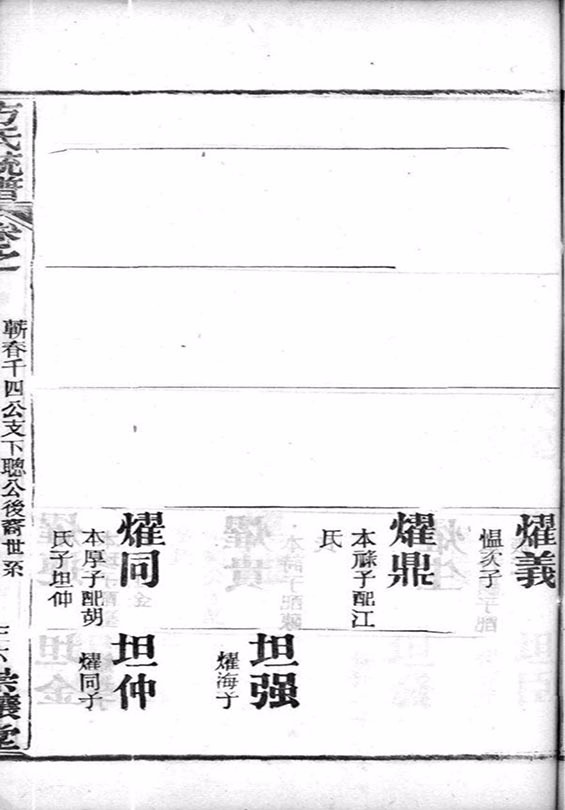 燿義
愠次子
燿鼎
本祿子配江
氏
坦强
燿海子
燿同
本厚子配胡
氏子坦仲
坦仲
燿同子
方氏統譜
卷之
蘄春千四公支下聰公後裔世系